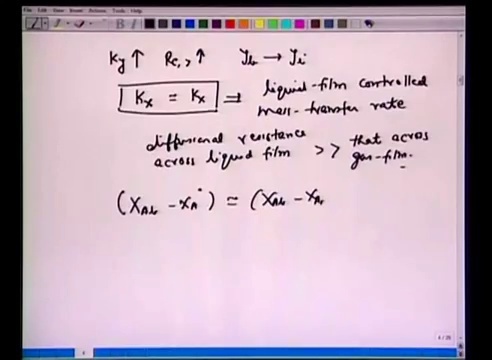 File Edit View Insert Actions Tools Help
Ky ↑ Re,g ↑ yb → yi
Kx = Kx ⇒ liquid-film controlled
mass-transfer rate
diffusional resistance
across liquid film >> that acros
gas-film.
(XAb - XA*) ≃ (XAb - XA